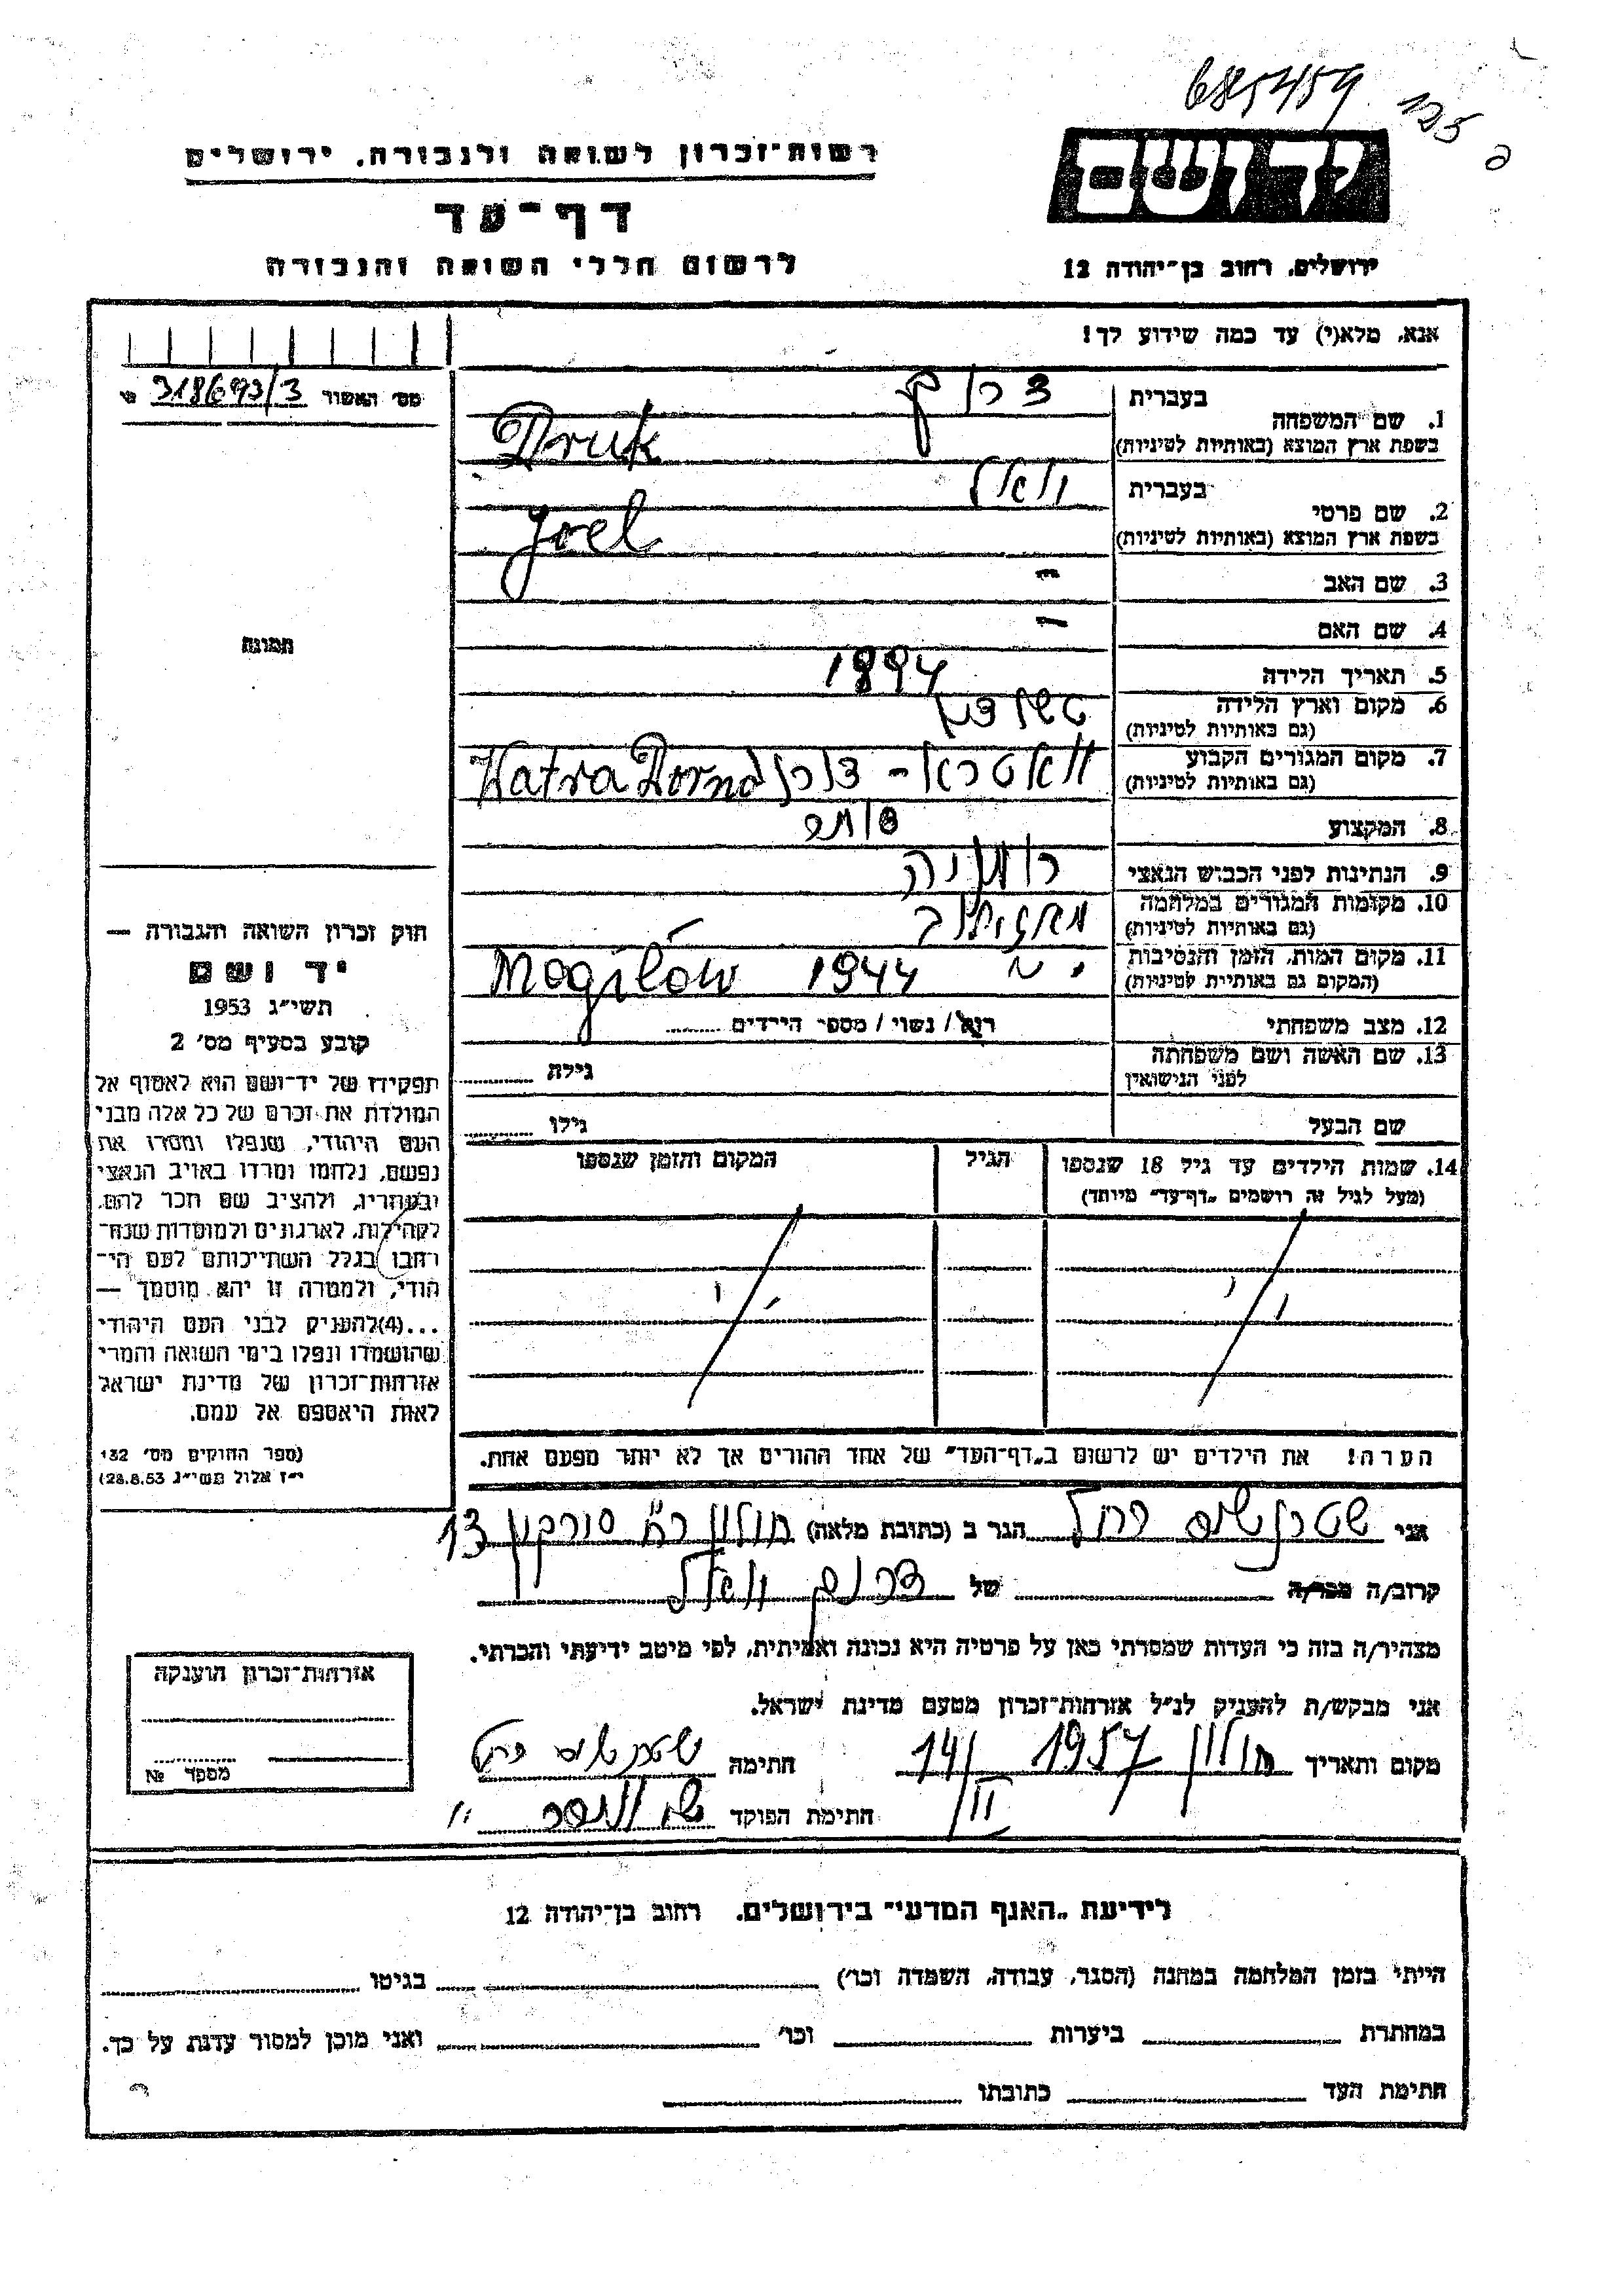 685459
125
רשות־זכרון לשואה ולגבורה, ירושלים
יד ושם
דף־עד
לרשום חללי השואה והגבורה
ירושלים, רחוב בן־יהודה 12
אנא, מלא(י) עד כמה שידוע לך!
מס׳ האשור 318693/3
1. שם המשפחה
בעברית דרוק
בשפת ארץ המוצא (באותיות לטיניות) Druk
2. שם פרטי
בעברית יואל
בשפת ארץ המוצא (באותיות לטיניות) Joel
3. שם האב -
4. שם האם -
תמונה
5. תאריך הלידה 1894
6. מקום וארץ הלידה
(גם באותיות לטיניות)
7. מקום המגורים הקבוע
(גם באותיות לטיניות) Watra Dorna
8. המקצוע סוחר
9. הנתינות לפני הכבוש הנאצי רומניה
10. מקומות המגורים במלחמה
(גם באותיות לטיניות)
11. מקום המות, הזמן והנסיבות
(המקום גם באותיות לטיניות) Mogilów 1944
12. מצב משפחתי רוק / נשוי / מספר הילדים
13. שם האשה ושם משפחתה
לפני הנישואין
גילה
שם הבעל
גילו
14. שמות הילדים עד גיל 18 שנספו
(מעל לגיל זה רושמים „דף־עד״ מיוחד)
הגיל
המקום והזמן שנספו
הערה! את הילדים יש לרשום ב„דף־העד״ של אחד ההורים אך לא יותר מפעם אחת.
חוק זכרון השואה והגבורה —
יד ושם
תשי״ג 1953
קובע בסעיף מס׳ 2
תפקידו של יד־ושם הוא לאסוף אל
המולדת את זכרם של כל אלה מבני
העם היהודי, שנפלו ומסרו את
נפשם, נלחמו ומרדו באויב הנאצי
ובעוזריו, ולהציב שם וזכר להם,
לקהילות, לארגונים ולמוסדות שנח־
רבו בגלל השתייכותם לעם הי־
הודי, ולמטרה זו יהא מוסמך —
...(4)להעניק לבני העם היהודי
שהושמדו ונפלו בימי השואה והמרי
אזרחות־זכרון של מדינת ישראל
לאות היאספם אל עמם.
(ספר החוקים מס׳ 132
י״ז אלול תשי״ג 28.8.53)
אני שטרנשוס רחל הגר ב (כתובת מלאה) חולון 13
קרוב/ה מכר/ה של דרוק יואל
מצהיר/ה בזה כי העדות שמסרתי כאן על פרטיה היא נכונה ואמיתית, לפי מיטב ידיעתי והכרתי.
אני מבקש/ת להעניק לנ״ל אזרחות־זכרון מטעם מדינת ישראל.
מקום ותאריך חולון 1957 14/ III חתימה שטרנשוס רחל
חתימת הפוקד
אזרחות־זכרון הוענקה
מספר №
לידיעת „האגף המדעי״ בירושלים, רחוב בן־יהודה 12
הייתי בזמן המלחמה במחנה (הסגר, עבודה, השמדה וכו׳) בגיטו
במחתרת ביערות וכו׳ ואני מוכן למסור עדות על כך.
חתימת העד כתובתו